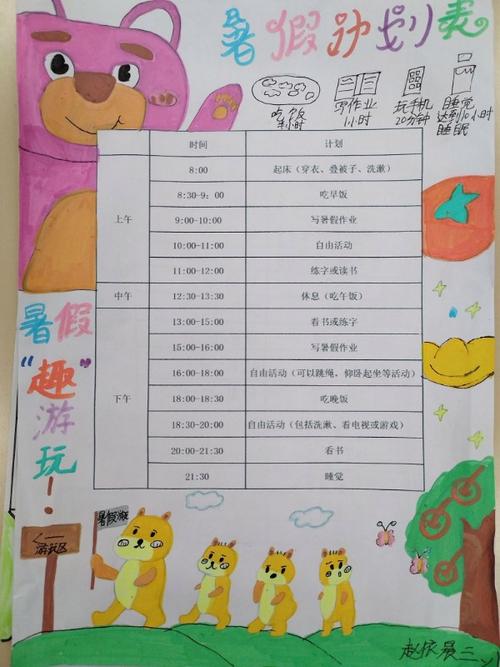 暑假计划表
吃饭
半小时
写作业
1小时
玩手机
20分钟
睡觉
达到10小时
睡眠
时间 计划
上午
8:00 起床（穿衣、叠被子、洗漱）
8:30-9：00 吃早饭
9:00-10:00 写暑假作业
10:00-11:00 自由活动
11:00-12:00 练字或读书
中午 12:30-13:30 休息（吃午饭）
下午
13:00-15:00 看书或练字
15:00-16:00 写暑假作业
16:00-18:00 自由活动（可以跳绳、仰卧起坐等活动）
18:00-18:30 吃晚饭
18:30-20:00 自由活动（包括洗漱、看电视或游戏）
20:00-21:30 看书
21:30 睡觉
暑假
“趣”
游
玩
！
暑假游
游玩区